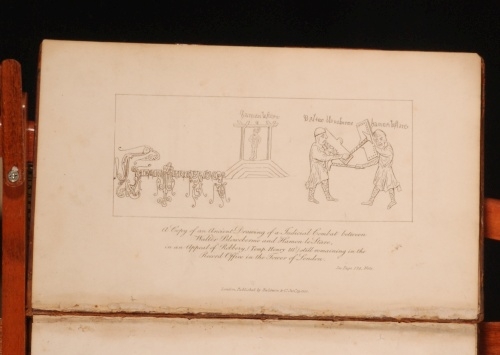 Walter Blowberme
Hamon le Stare
A Copy of an Ancient Drawing of a Judicial Combat between
Walter Blowberme and Hamon le Stare,
in an Appeal of Robbery (Temp. Henry III) still remaining in the
Record Office in the Tower of London.
London, Published by